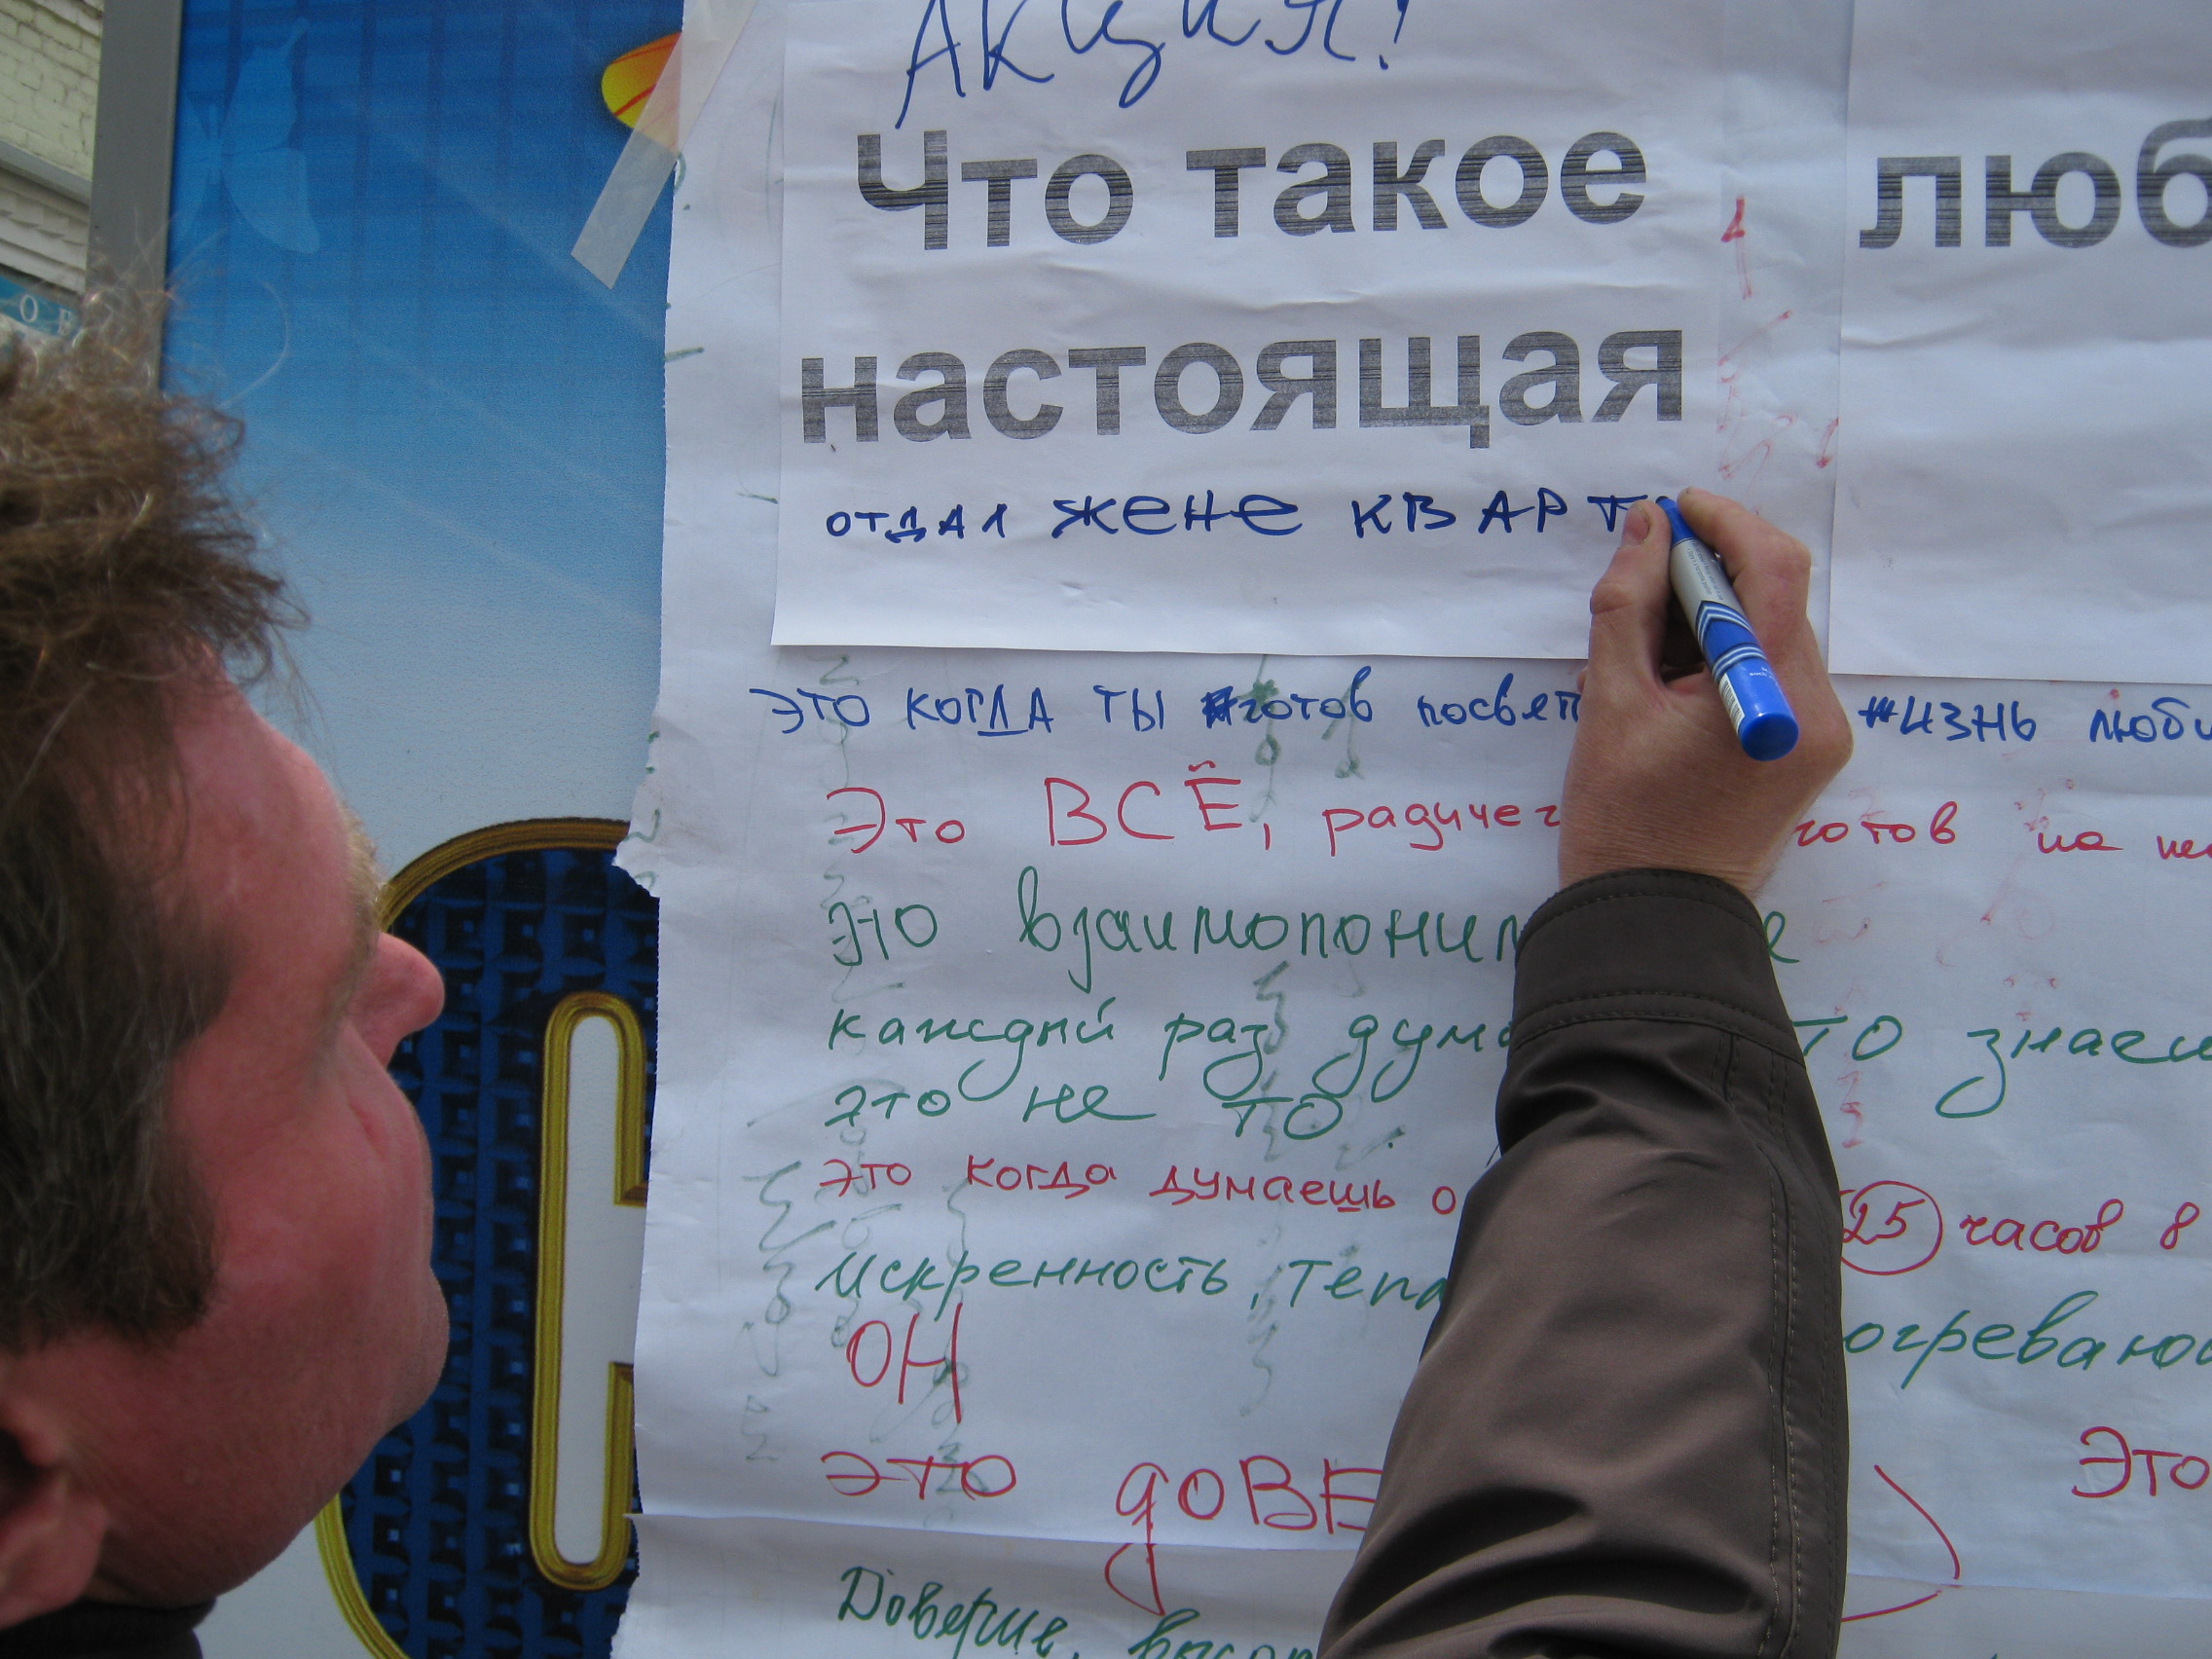 АКЦИЯ!
Что такое люб
настоящая
отдал жене кварт
это когда ты готов посвят жизнь люби
Это ВСЁ, радичег готов на
это взаимопоним е
каждый раз дума то знаеш
это не то.
это когда думаешь о 25 часов в
искренность, тепл огреваю
ОН
это дове Это
Доверие,